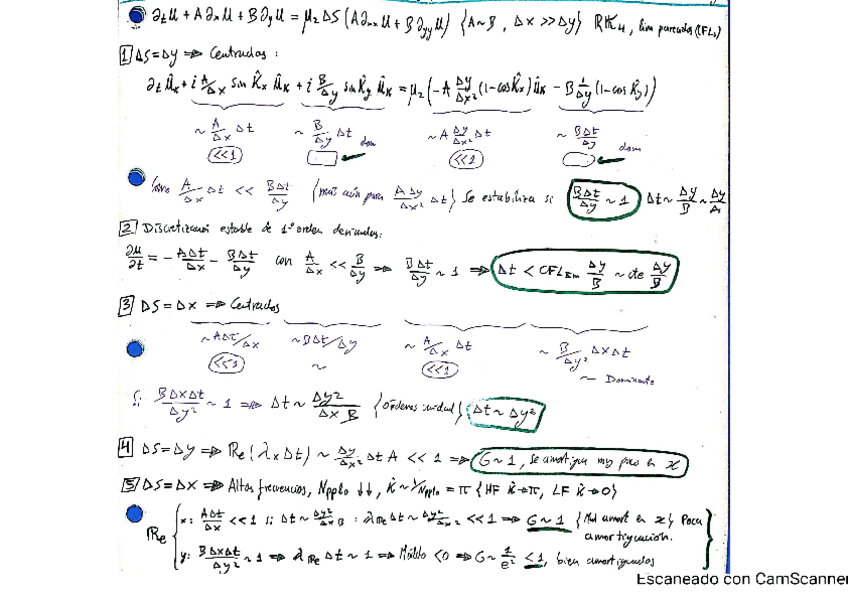 ∂tu + A∂xu + B∂yu = μ2 ΔS (A∂xxu + B∂yyu) {A~B, Δx >> Δy} RK4, lim parecidos (CFL)
1 ΔS = Δy ⇒ Centrados :
∂tûk + i A/Δx sin K̂x ûk + i B/Δy sin K̂y ûk = μ2 (-A Δy/Δx² (1-cos K̂x) ûk - B 1/Δy (1-cos K̂y))
~ A/Δx Δt ~ B/Δy Δt ~ A Δy/Δx² Δt ~ BΔt/Δy
<<1 dom <<1 dom
Como A/Δx Δt << BΔt/Δy (más aún para AΔy/Δx² Δt) Se estabiliza si BΔt/Δy ~ 1 Δt ~ Δy/B ~ Δy/A
2 Discretización estable de 1º orden derivadas:
∂u/∂t = - AΔt/Δx - BΔt/Δy con A/Δx << B/Δy ⇒ BΔt/Δy ~ 1 ⇒ Δt < CFL Δy/B ~ cte Δy/B
3 ΔS = Δx ⇒ Centrados
~ AΔt/Δx ~ BΔt/Δy ~ A/Δx Δt ~ B/Δy² ΔxΔt
<<1 ~ <<1 ~ Dominante
Si BΔxΔt/Δy² ~ 1 ⇒ Δt ~ Δy²/Δx B {Órdenes unidad} Δt ~ Δy²
4 ΔS = Δy ⇒ Re(λxΔt) ~ Δy/Δx² Δt A << 1 ⇒ G ~ 1, se amortigua muy poco en x
5 ΔS = Δx ⇒ Altas frecuencias, Npplo ↓↓, K̂ ~ 1/Npplo = π {HF K̂→π, LF K̂→0}
Re
x: AΔt/Δx << 1 si Δt ~ Δy²/Δx B : λRe Δt ~ Δy²/Δx² << 1 ⇒ G ~ 1 {Mal amort en x} Poca
amortiguación.
y: BΔxΔt/Δy² ~ 1 ⇒ λRe Δt ~ 1 ⇒ <0 ⇒ G ~ 1/e² < 1, bien amortiguados
Escaneado con CamScanner